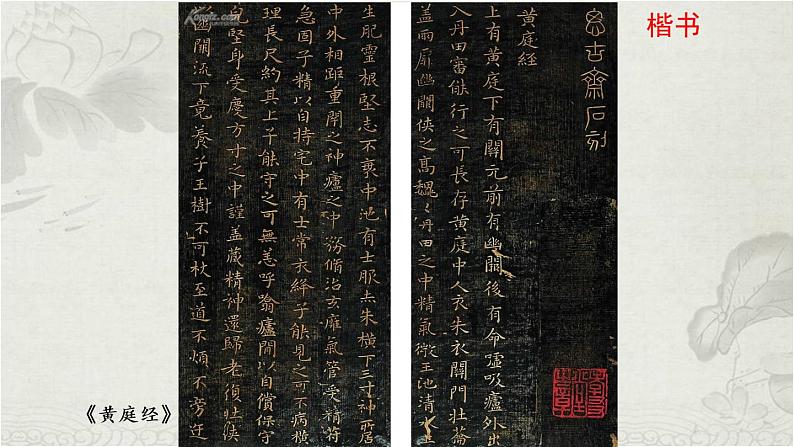 楷书
思古齋石刻
黄庭經
上有黄庭下有關元前有幽闕後有命噓吸廬外出
入丹田審能行之可長存黄庭中人衣朱衣關門壯籥
蓋兩扉幽闕俠之高魏〻丹田之中精氣微玉池清水上
生肥靈根堅志不衰中池有士服赤朱橫下三寸神所居
中外相距重閉之神廬之中務脩治玄𤸇氣管受精符
急固子精以自持宅中有士常衣絳子能見之可不病橫
理長尺約其上子能守之可無恙呼翕廬間以自償保守
完堅身受慶方寸之中謹蓋藏精神還歸老復壯俠
幽闕流下竟養子玉樹不可杖至道不煩不旁迕
《黄庭经》